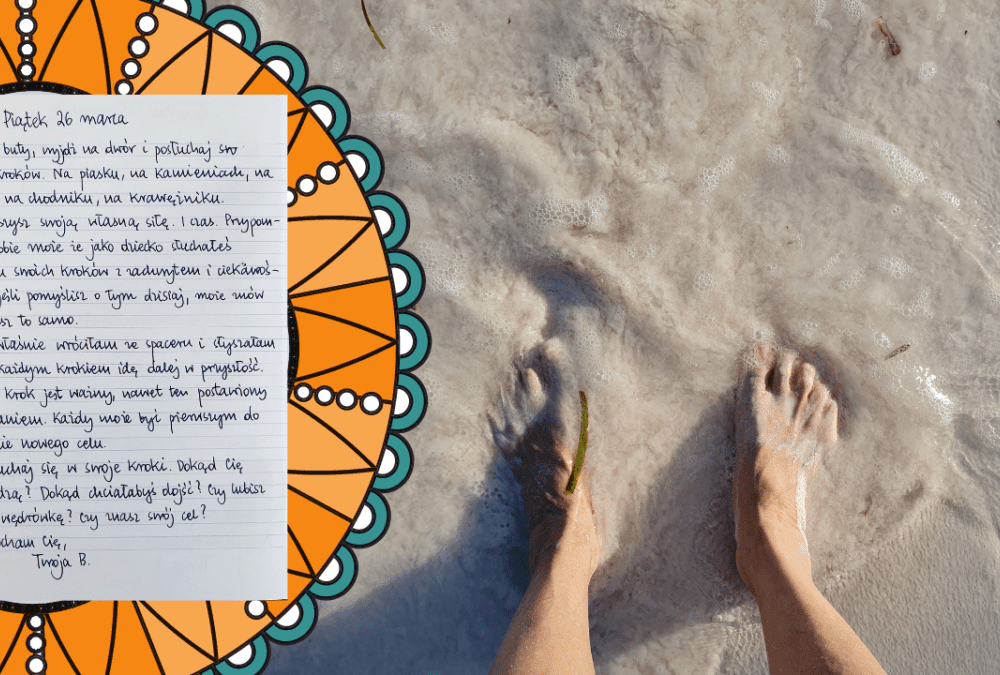 Piątek 26 marca
buty, wyjdź na dwór i posłuchaj swo
kroków. Na piasku, na kamieniach, na
na chodniku, na krawężniku.
szysz swoją własną siłę. I czas. Przypom-
obie może że jako dziecko słuchałeś
u swoich kroków z zachwytem i ciekawoś-
yśli pomyślisz o tym dzisiaj, może znów
sz to samo.
właśnie wróciłam ze spaceru i słyszałam
każdym krokiem idę dalej w przyszłość.
krok jest ważny, nawet ten postawiony
aniem. Każdy może być pierwszym do
nie nowego celu.
uchaj się w swoje kroki. Dokąd Cię
dzą? Dokąd chciałabyś dojść? Czy lubisz
wędrówkę? Czy znasz swój cel?
ocham Cię,
Twoja B.